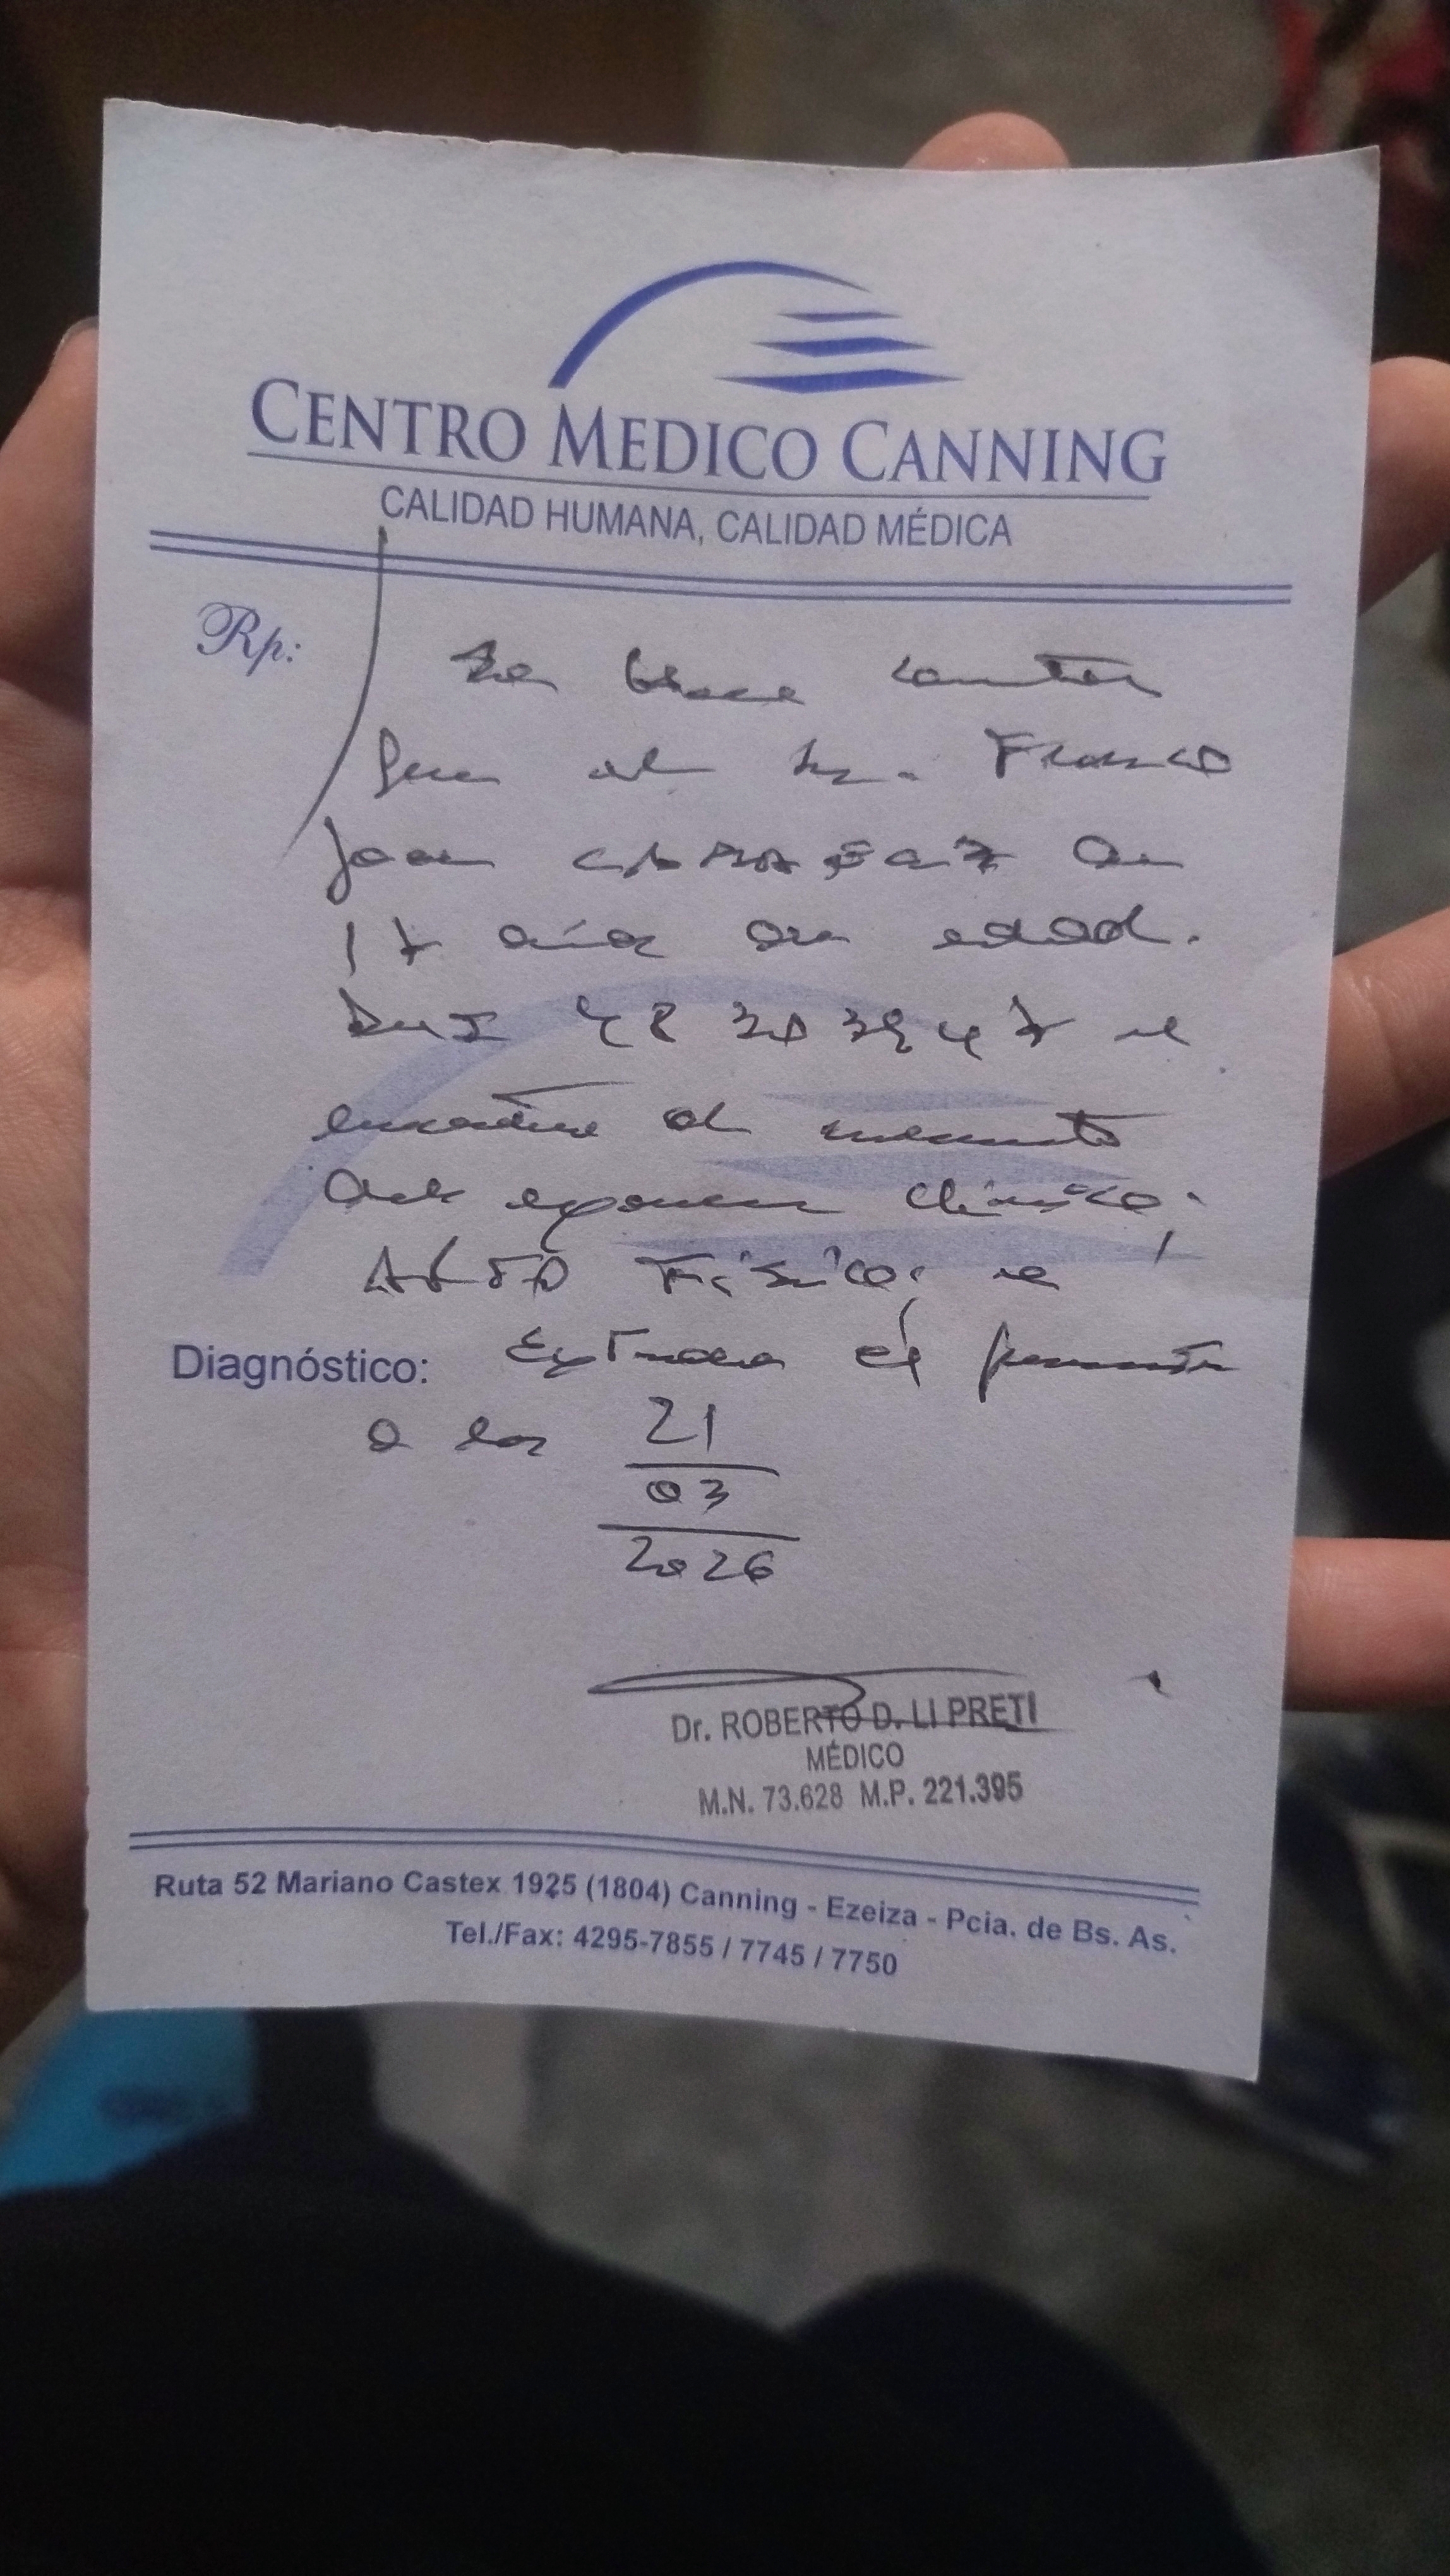 CENTRO MEDICO CANNING
CALIDAD HUMANA, CALIDAD MÉDICA
Rp:
Se hace constar
que el Sr. Franco
Joan de
17 años de edad.
DNI 48 se
encuentra al momento
del examen clínico,
APTO Físico; se
Diagnóstico: Extiende el presente
a los 21
03
2026
Dr. ROBERTO D. LI PRETI
MÉDICO
M.N. 73.628 M.P. 221.395
Ruta 52 Mariano Castex 1925 (1804) Canning - Ezeiza - Pcia. de Bs. As.
Tel./Fax: 4295-7855 / 7745 / 7750